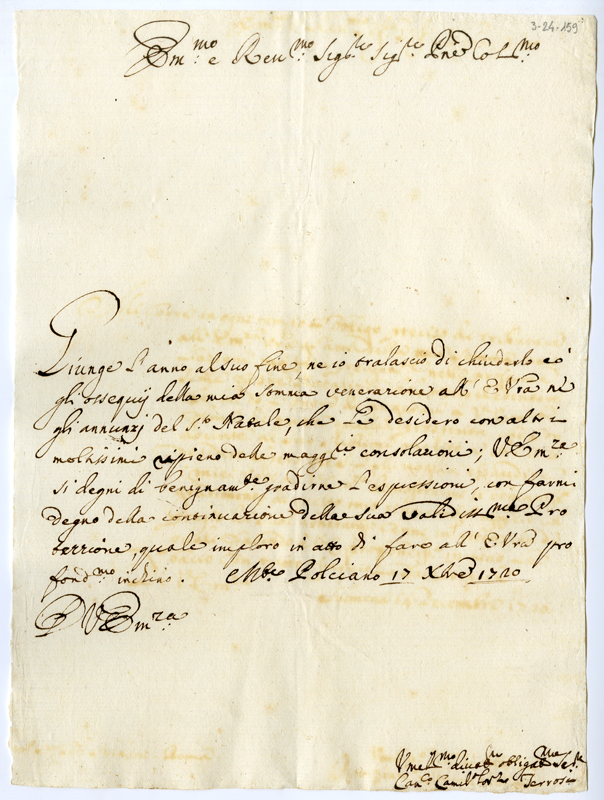 3-24-159
Em:mo e Reu:mo Sig:re Sig:re Pne Col:mo
Giunge l'anno al suo fine, ne io tralascio di chiuderlo co'
gli ossequij della mia somma venerazione all' E Vra nè
gli annunzj del S:to Natale, che Le desidero con altri
moltissimi ripieno delle magg:ri consolazioni; V. Em:za
si degni di benignam:te gradirne l'espressioni, con farmi
degno della continuazione della sua validiss:ma Pro
tezzione, quale imploro in atto di fare all' E Vra pro
fond:mo inchino. M:te Polciano 17 Xbre 1720
D V Em:za
Vmil:mo diuot:mo obligat:mo Se:re
Can:co Camil